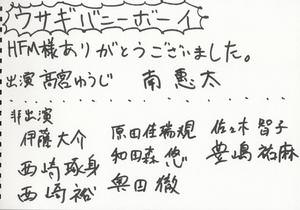 ウサギバニーボーイ
HFM様ありがとうございました。
出演 髙宮ゆうじ 南 恵太
非出演
伊藤大介 原田佳瑞規 佐々木智子
西崎琢身 和田森悠 豊嶋祐麻
西崎裕 奥田徹